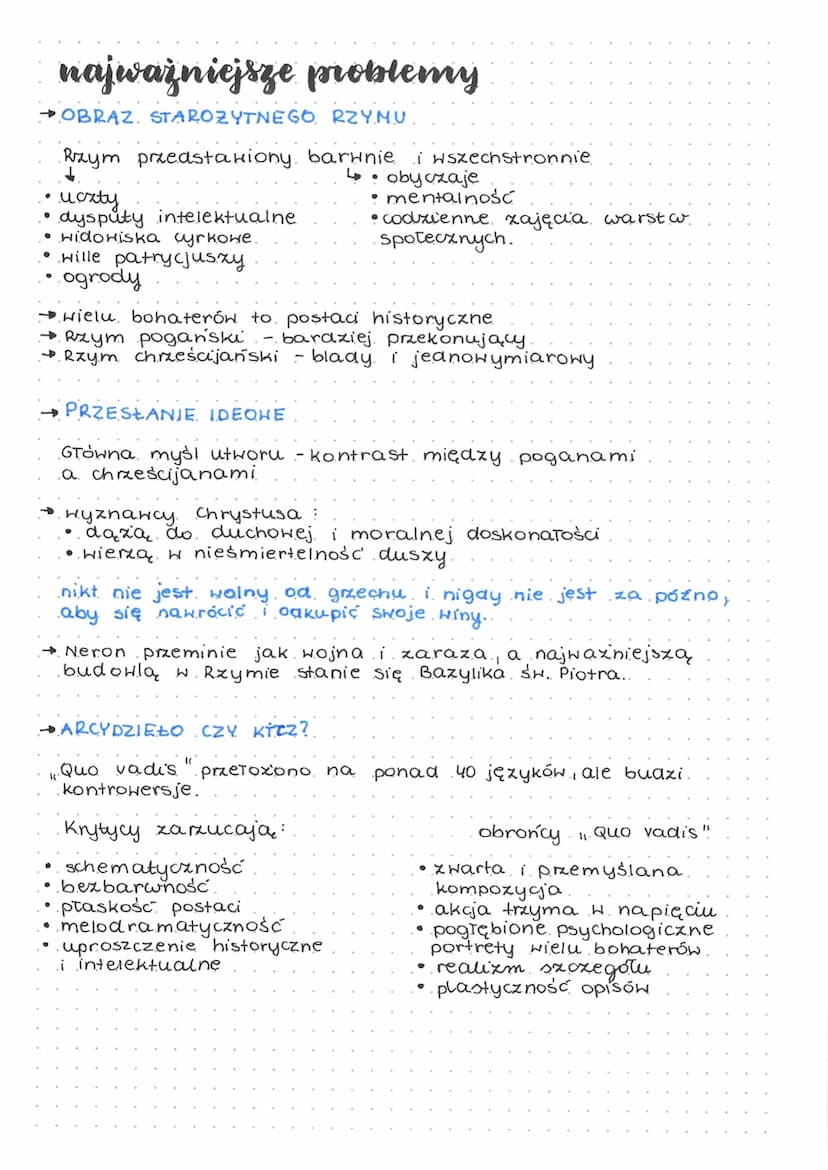 najważniejsze problemy
→ OBRAZ STAROŻYTNEGO RZYMU
Rzym przedstawiony barwnie i wszechstronnie
↓
• uczty
• dysputy intelektualne
• widowiska cyrkowe
• wille patrycjuszy
• ogrody
↳ • obyczaje
• mentalność
• codzienne zajęcia warstw
społecznych.
→ wielu bohaterów to postaci historyczne
→ Rzym pogański - bardziej przekonujący
→ Rzym chrześcijański - blady i jednowymiarowy
→ PRZESŁANIE IDEOWE
Główna myśl utworu - kontrast między poganami
a chrześcijanami
→ wyznawcy Chrystusa :
• dążą do duchowej i moralnej doskonałości
• wierzą w nieśmiertelność duszy
nikt nie jest wolny od grzechu i nigdy nie jest za późno,
aby się nawrócić i odkupić swoje winy.
→ Neron przeminie jak wojna i zaraza, a najważniejszą
budowlą w Rzymie stanie się Bazylika św. Piotra.
→ ARCYDZIEŁO CZY KICZ?
„Quo vadis" przełożono na ponad 40 języków, ale budzi
kontrowersje.
Krytycy zarzucają:
• schematyczność
• bezbarwność
• płaskość postaci
• melodramatyczność
• uproszczenie historyczne
i intelektualne
obrońcy „Quo vadis"
• zwarta i przemyślana
kompozycja
• akcja trzyma w napięciu
• pogłębione psychologiczne
portrety wielu bohaterów
• realizm szczegółu
• plastyczność opisów